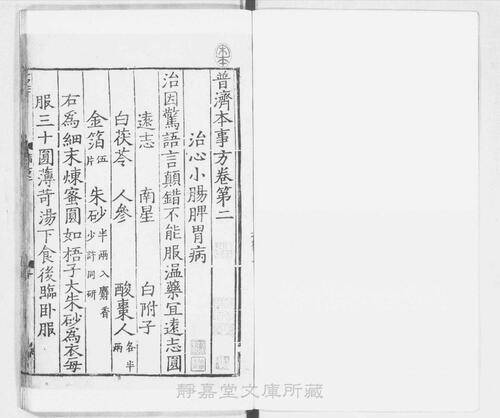 普濟本事方卷第二
治心小腸脾胃病
治因驚語言顛錯不能服温藥宜遠志圓
遠志 南星 白附子
白茯苓 人參 酸棗人各半兩
金箔伍片 朱砂半兩入麝香少許同研
右爲細末煉蜜圓如梧子大朱砂爲衣每
服三十圓薄苛湯下食後臨卧服
靜嘉堂文庫所藏